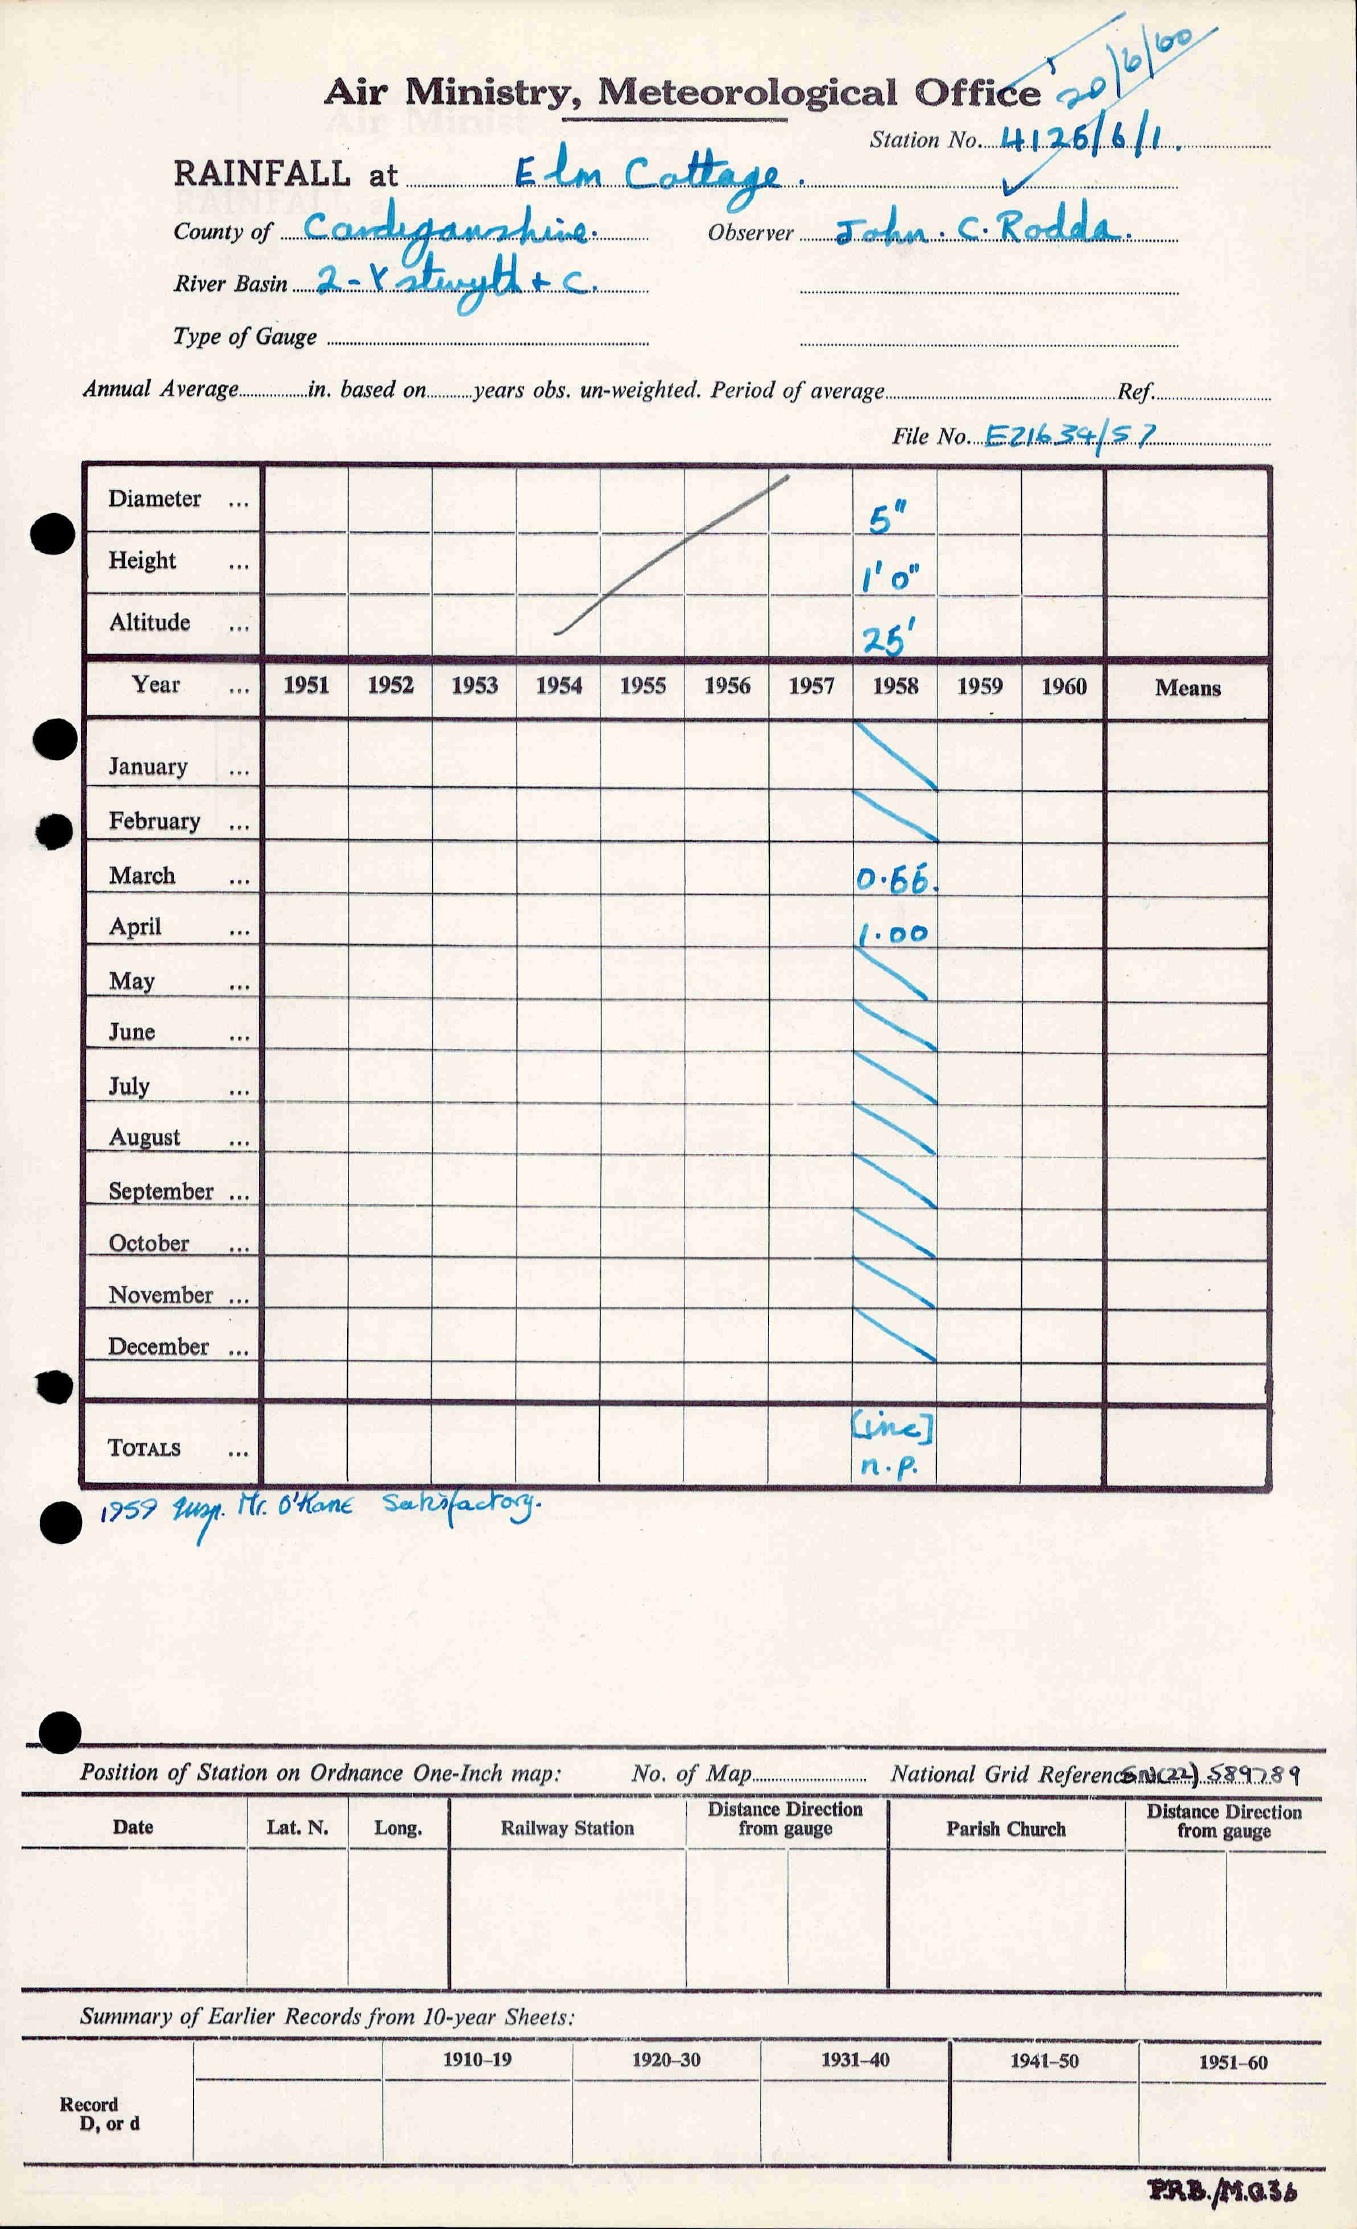 20/6/60
Air Ministry, Meteorological Office
Station No. 4126/6/1.
RAINFALL at Elm Cottage.
County of Cardiganshire. Observer John. C. Rodda.
River Basin 2-Ystwyth + C.
Type of Gauge
Annual Average in. based on years obs. un-weighted. Period of average Ref.
File No. E21634/57
Diameter ... 5"
Height ... 1' 0"
Altitude ... 25'
Year ... 1951 1952 1953 1954 1955 1956 1957 1958 1959 1960 Means
January ...
February ...
March ... 0.66.
April ... 1.00
May ...
June ...
July ...
August ...
September ...
October ...
November ...
December ...
TOTALS ... [inc]
n.p.
1959 Insp. Mr. O'Kane Satisfactory.
Position of Station on Ordnance One-Inch map: No. of Map National Grid Reference SN(22) 589789
Date Lat. N. Long. Railway Station Distance Direction from gauge Parish Church Distance Direction from gauge
Summary of Earlier Records from 10-year Sheets:
1910–19 1920–30 1931–40 1941–50 1951–60
Record
D, or d
P.R.B./M.O.36